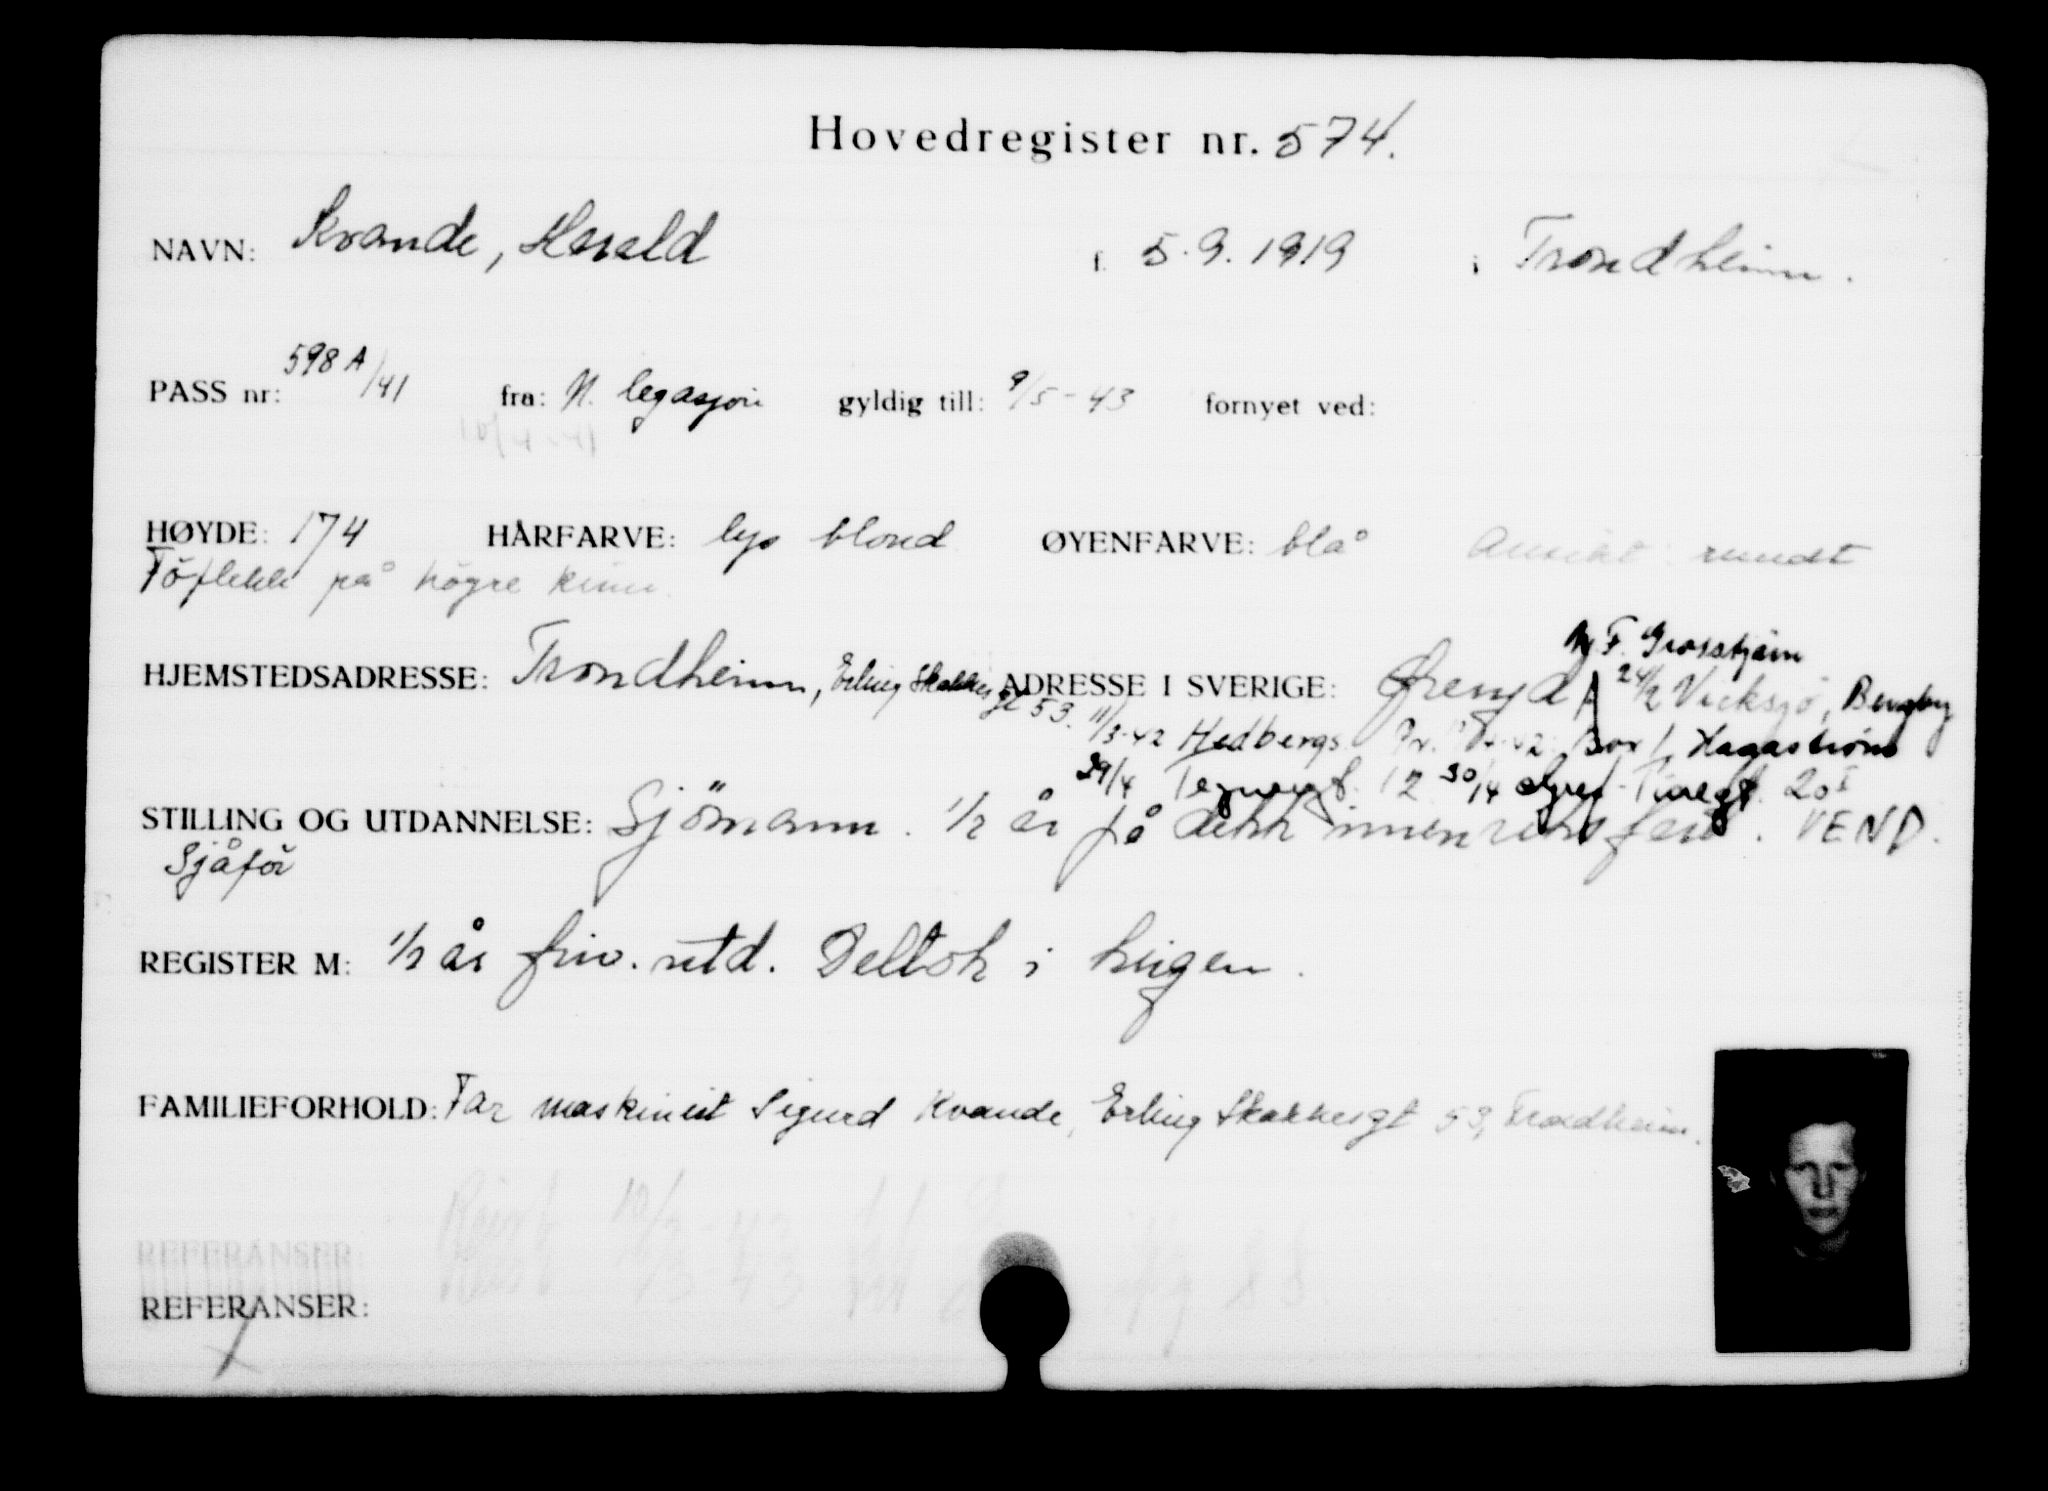 Hovedregister nr. 574.
NAVN: Kvande, Harald f. 5.9.1919 i Trondheim.
PASS nr: 598 A/41 fra: N. legasjon gyldig till: 9/5-43 fornyet ved:
HØYDE: 174 HÅRFARVE: lys blond ØYENFARVE: blå Ansikt: rundt
Föflekk på högre kinn.
HJEMSTEDSADRESSE: Trondheim, Erling Skakkes gt 53. ADRESSE I SVERIGE: Öreryd
24/2 Vicksjö,
11/3-42 Hedbergs Hagaström
29/4 12 30/4 20
STILLING OG UTDANNELSE: Sjömann. 1/2 år på dekk innenriks fart. VEND.
Sjåför
REGISTER M: 1/2 år utd. Deltok i krigen.
FAMILIEFORHOLD: Far maskinist Sigurd Kvande, Erling Skakkesgt 53, Trondheim.
REFERANSER: